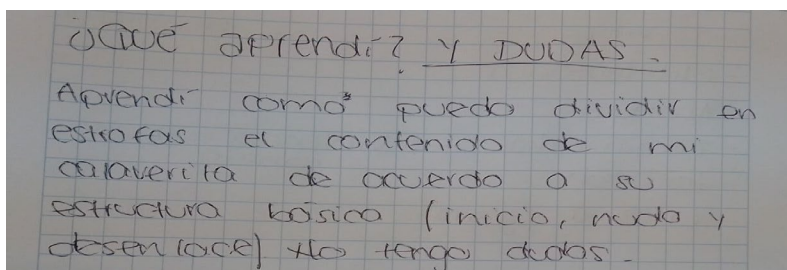 ¿Qué aprendí? Y DUDAS.
Aprendí como puedo dividir en
estrofas el contenido de mi
calaverita de acuerdo a su
estructura básica (inicio, nudo y
desenlace) No tengo dudas.